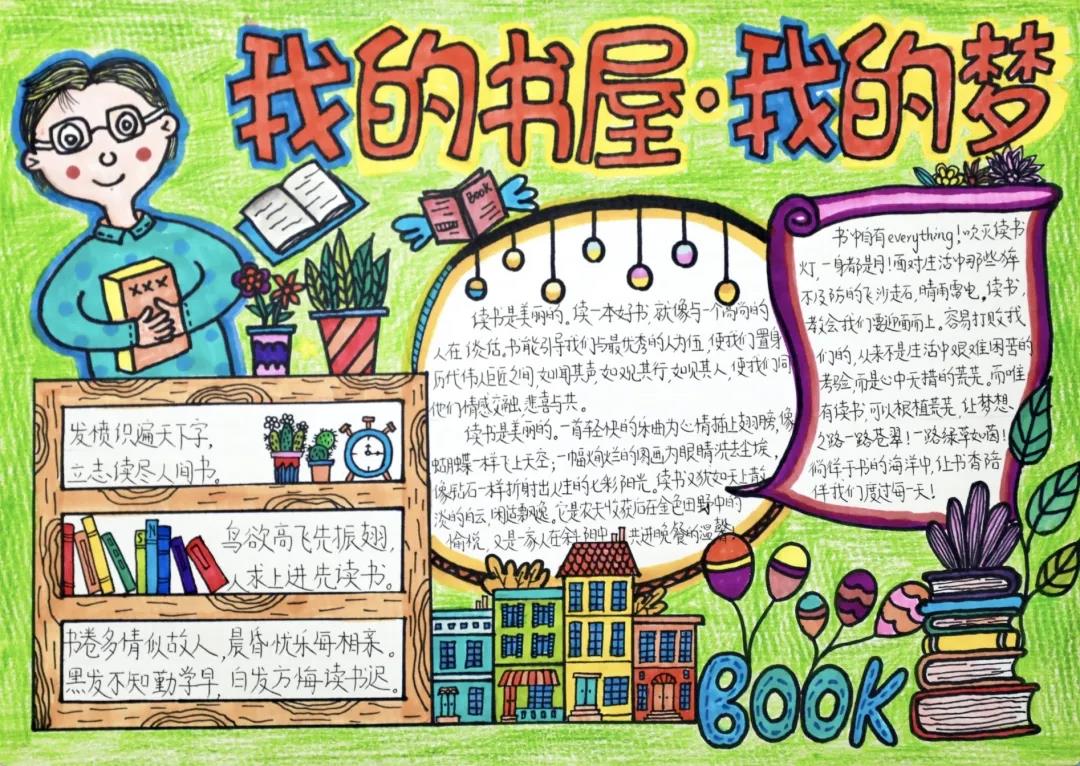 我的书屋·我的梦
BOOK
×××
读书是美丽的。读一本好书,就像与一个高尚的
人在谈话,书能引导我们与最优秀的人为伍,使我们置身
历代伟人巨匠之间,如闻其声,如观其行,如见其人,使我们同
他们情感交融、悲喜与共。
读书是美丽的。一首轻快的乐曲为心情插上翅膀,像
蝴蝶一样飞上天空;一幅灿烂的图画为眼睛洗去尘埃,
像钻石一样折射出人生的七彩阳光。读书又犹如天上散
淡的白云,闲适飘逸。它是农夫收获后在金色田野中的
愉悦,又是一家人在斜阳中共进晚餐的温馨!
书中自有everything!吹灭读书
灯,一身都是月!面对生活中那些猝
不及防的飞沙走石,晴雨雷电。读书,
教会我们迎面而上。容易打败我
们的,从来不是生活中艰难困苦的
考验而是心中无措的荒芜。而唯
有读书,可以根植荒芜,让梦想
之路一路苍翠!一路绿草如茵!
徜徉于书的海洋中,让书香陪
伴我们度过每一天!
发愤识遍天下字,
立志读尽人间书。
鸟欲高飞先振翅,
人求上进先读书。
书卷多情似故人,晨昏忧乐每相亲。
黑发不知勤学早,白发方悔读书迟。
BOOK